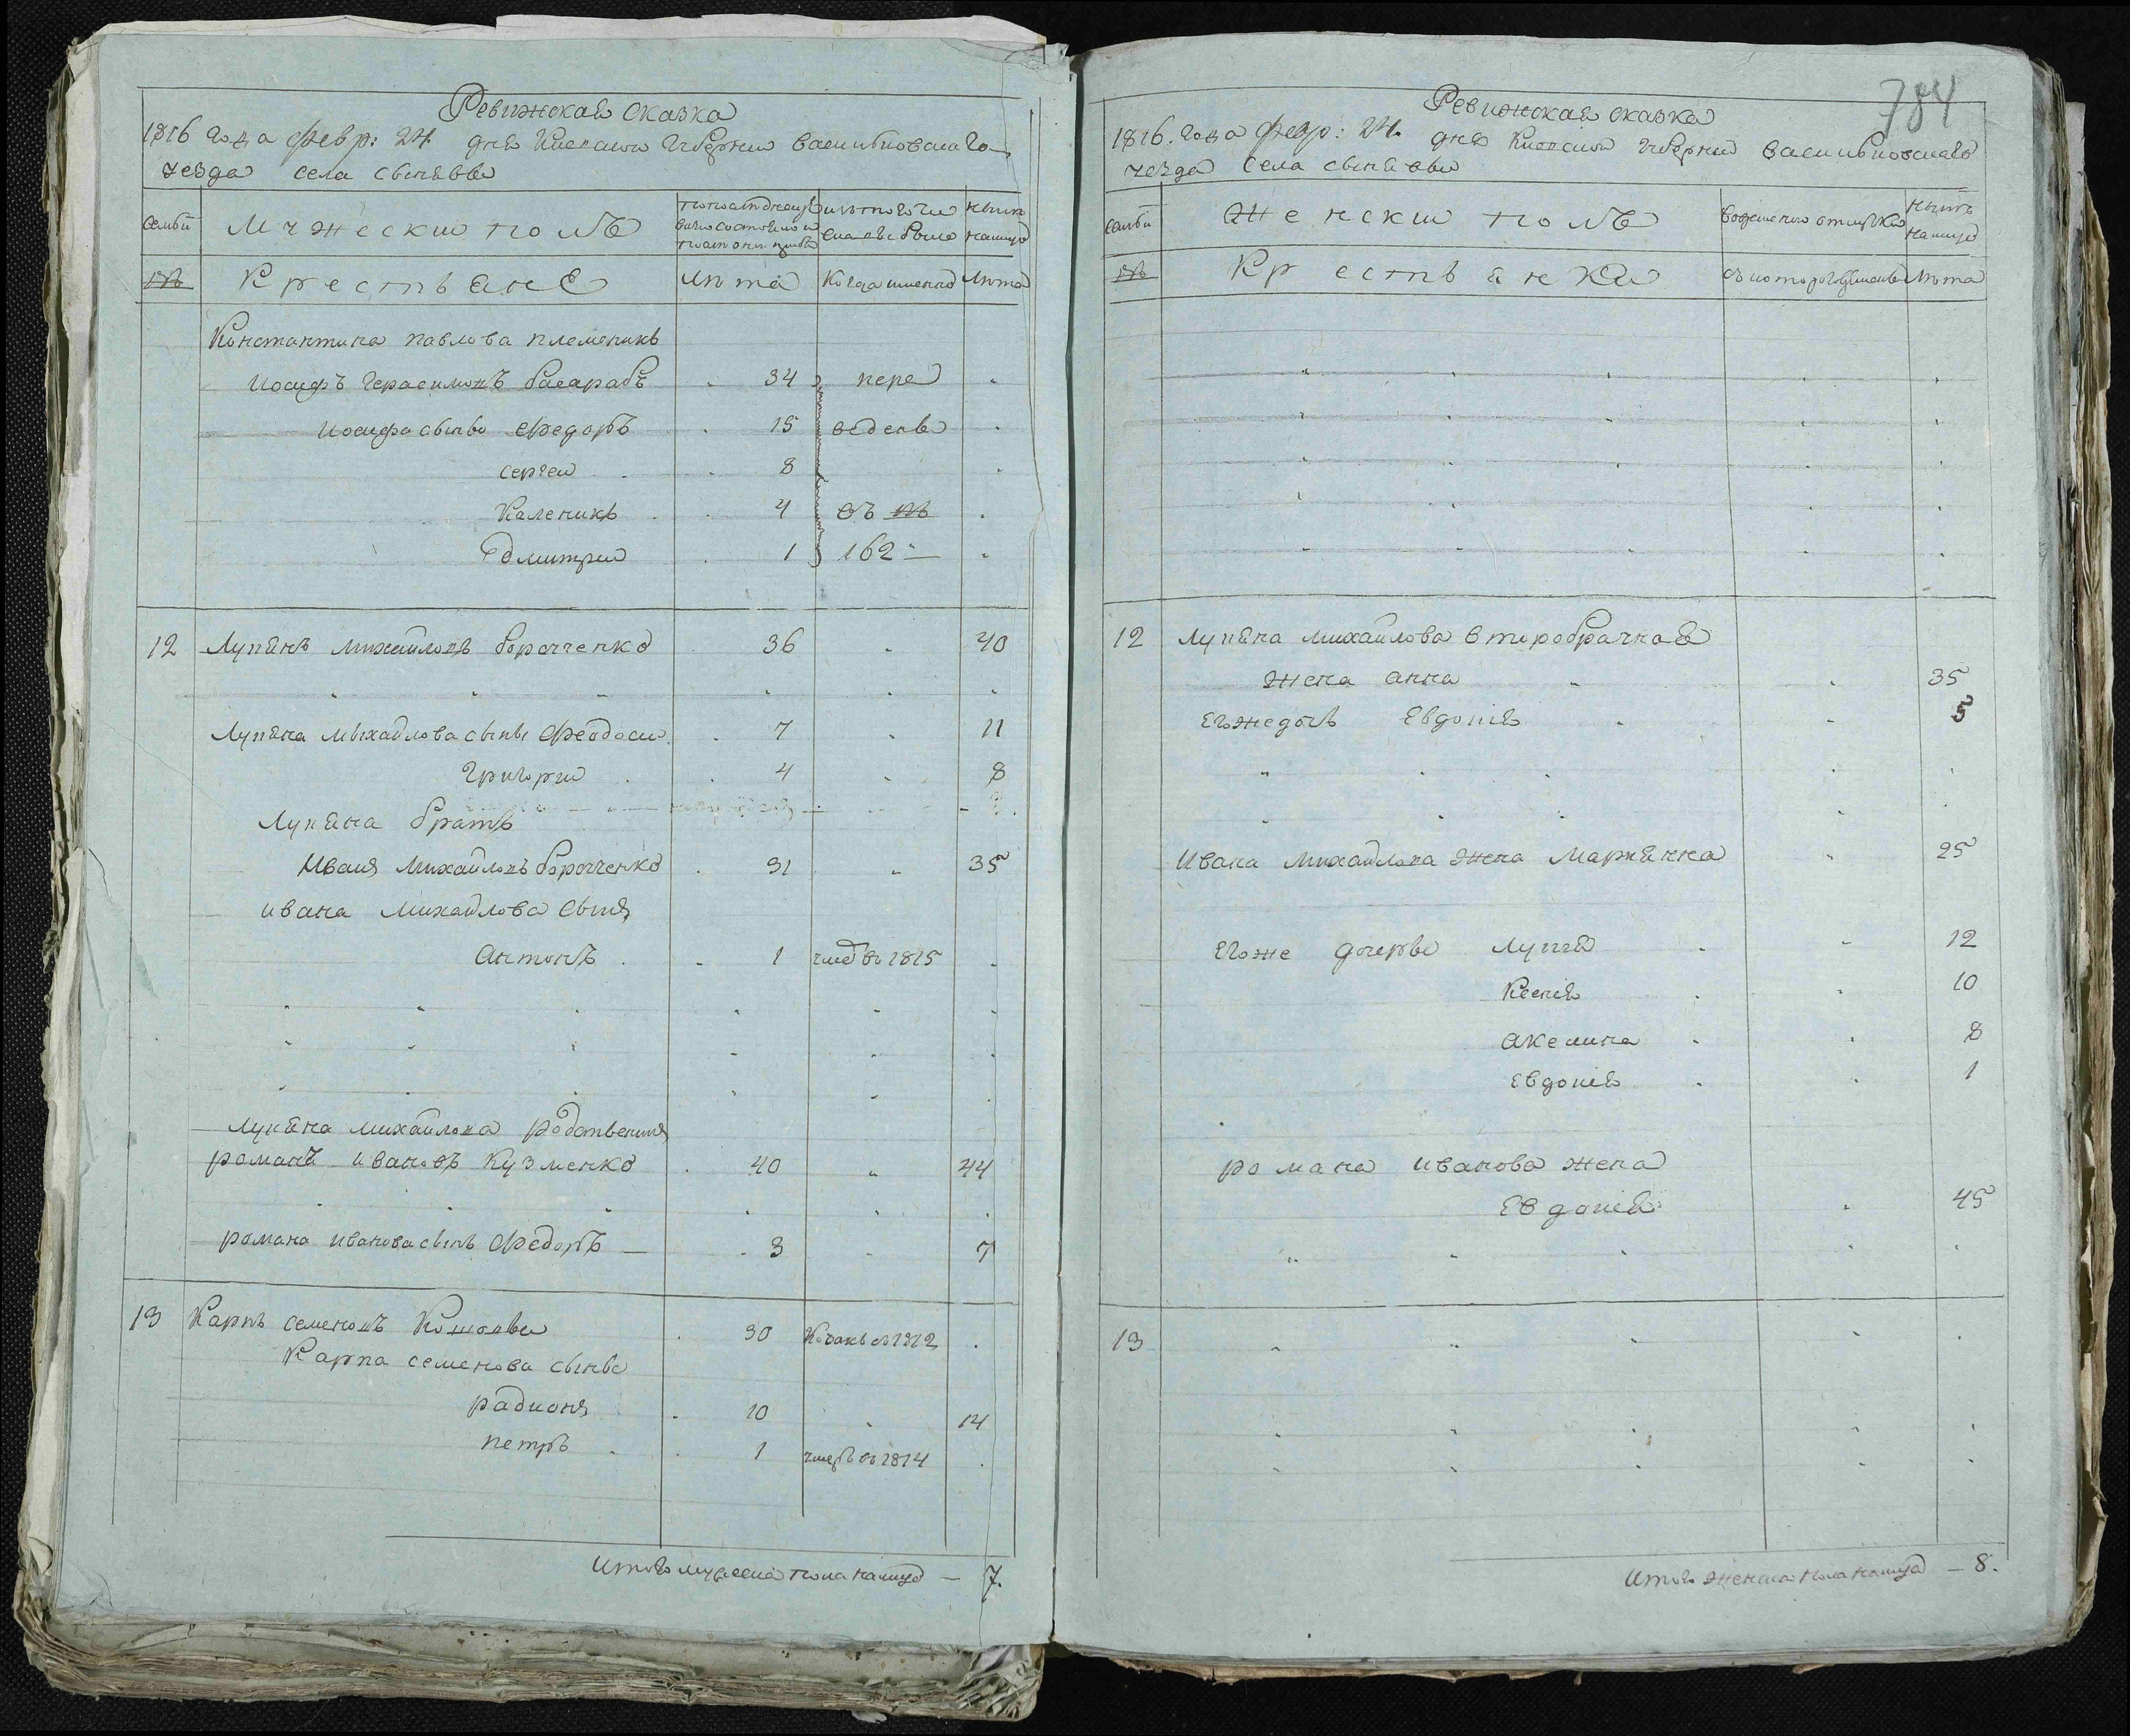 Ревижская сказка
1816 года февр: 24 дня Киевской губернии васильковскаго
уезда села свинявы
семьи
Мужески полъ
Ныне налицо
№
Крестьяне
Лета
Когда именно
Лета
Константина павлова племеникъ
Иосифъ Герасимовъ басарабъ 34 пере
Иосифа сынве Федоръ 15 ведены
сергеи 8
Каленикъ 4 въ №
Дмитри 1 162
12 Лукянъ михайловъ борочченко 36 40
Лукяна михайлова сыны Феодоси 7 11
Григори 4 8
Лукяна братъ
Иванъ Михайловъ борочченко 31 35
ивана михайлова сынъ
Антонъ 1 умер въ 1815
лукяна михайлова родственикъ
романъ ивановъ Кузменко 40 44
романа иванова сынъ Федоръ 3 7
13 Карпъ семеновъ 30 1812
Карпа семенова сынве
радионъ 10 14
петръ 1 умеръ въ 1814
Итого мужеска пола налицо — 7.
784
Ревижская сказка
1816. года февр: 24. дня Киевской губернии васильковскаго
уезда села свинявы
семьи
Женски полъ
во временной отлучке
Ныне налицо
№
Крестьянки
съ котораго времени
Лета
12 лукяна михайлова второбрачная
жена анна 35
Егожедочь Евдокия 5
Ивана михайлова жена Маркянна 25
Егоже дочерве лукия 12
Ксения 10
акелина 8
Евдокия 1
романа иванова жена
Евдокия 45
13
Итого женска пола налицо — 8.